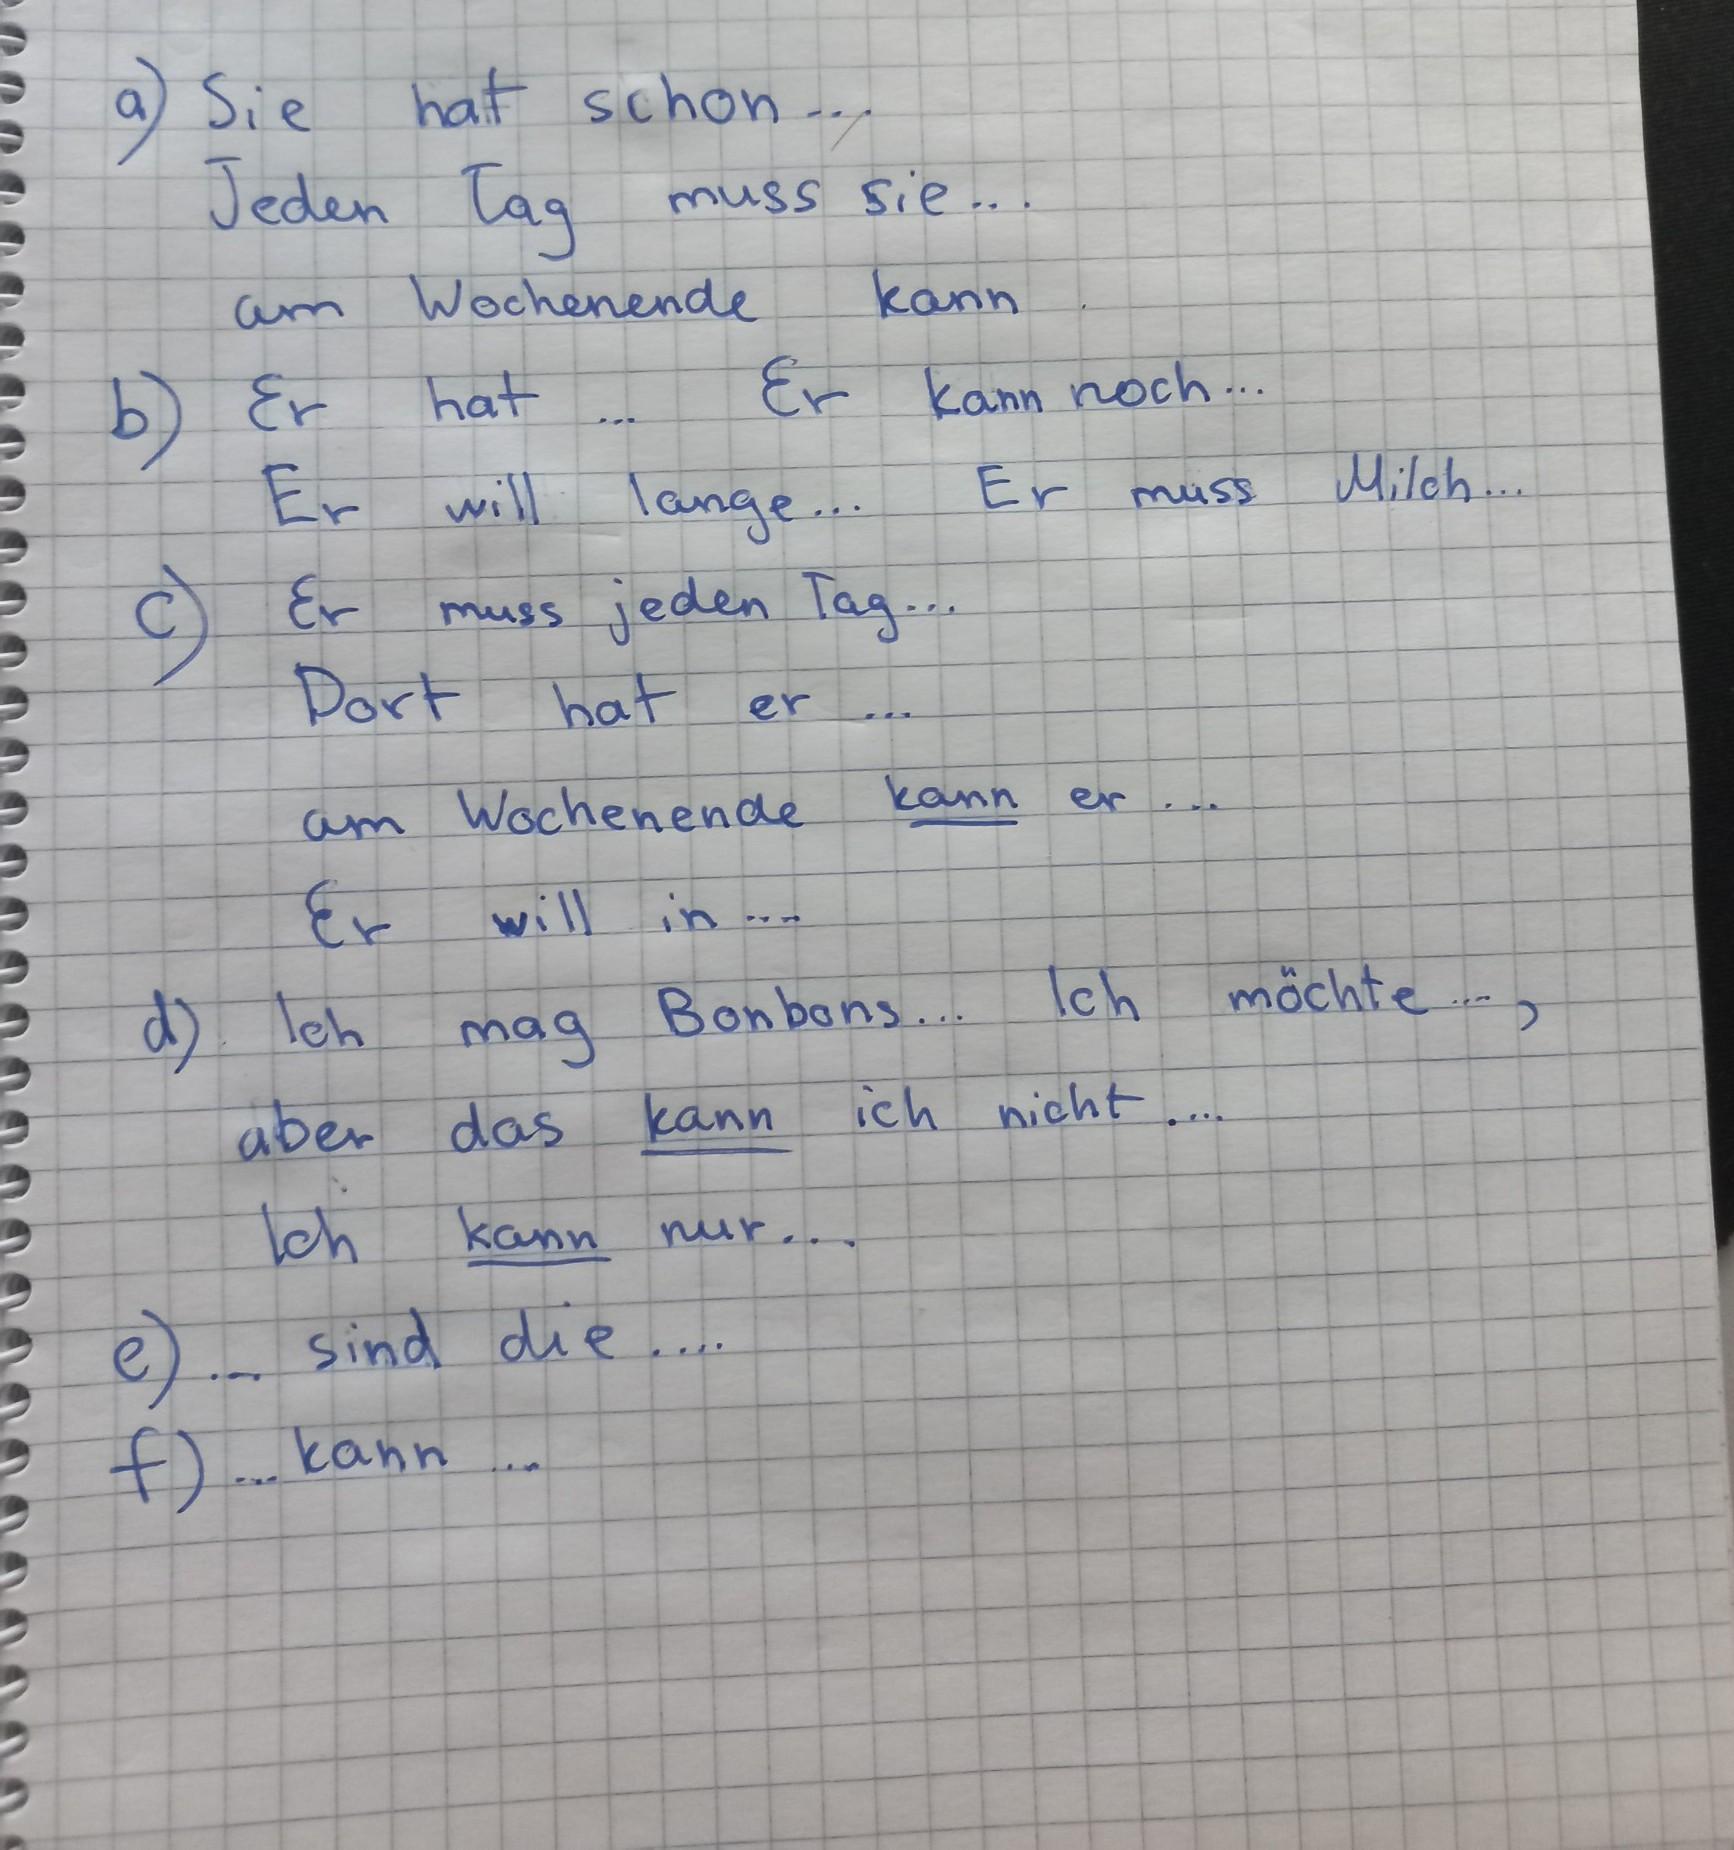 a) Sie hat schon...
Jeden Tag muss sie...
am Wochenende kann
b) Er hat ... Er kann noch...
Er will lange... Er muss Milch...
c) Er muss jeden Tag...
Dort hat er ...
am Wochenende kann er ...
Er will in ...
d) Ich mag Bonbons... Ich möchte ...,
aber das kann ich nicht....
Ich kann nur...
e) ... sind die ....
f) ... kann ...